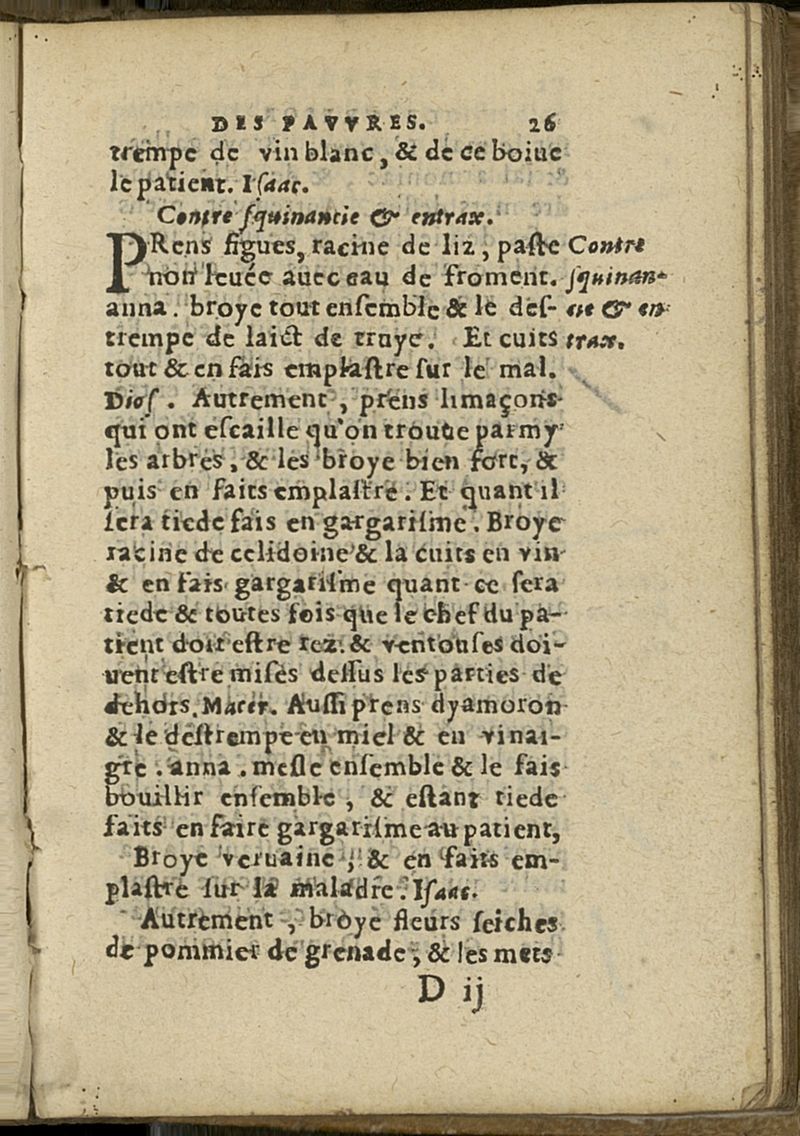 DES PAVVRES. 26
trempe de vin blanc, & de ce boiue
le patient. Iſaac.
Contre ſquinancie & entrax.
PRens figues, racine de liz, paſte
non leuée auec eau de froment.
anna. broye tout enſemble & le deſ-
trempe de laict de truye. Et cuits
tout & en fais emplaſtre ſur le mal.
Dioſ. Autrement, prens limaçons
qui ont eſcaille qu'on trouue parmy
les arbres, & les broye bien fort, &
puis en faits emplaſtre. Et quant il
ſera tiede fais en gargariſme. Broye
racine de celidoine & la cuits en vin
& en fais gargariſme quant ce ſera
tiede & toutes fois que le chef du pa-
tient doit eſtre rez. & ventouſes doi-
uent eſtre miſes deſſus les parties de
dehors. Macer. Auſſi prens dyamoron
& le deſtrempe en miel & en vinai-
gre. anna. meſle enſemble & le fais
bouillir enſemble, & eſtant tiede
faits en faire gargariſme au patient,
Broye veruaine, & en faits em-
plaſtre ſur la maladre. Iſaac.
Autrement, broye fleurs ſeiches
de pommier de grenade, & les mets
D ij
Contre
ſquinan-
cie & en
trax.